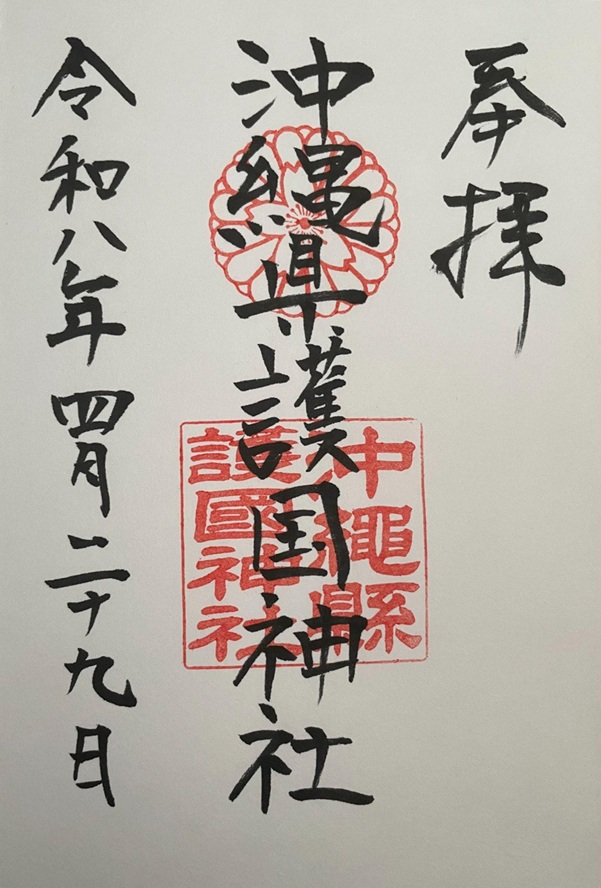 奉拝
沖縄県護国神社
沖繩縣
護國神社
令和八年四月二十九日